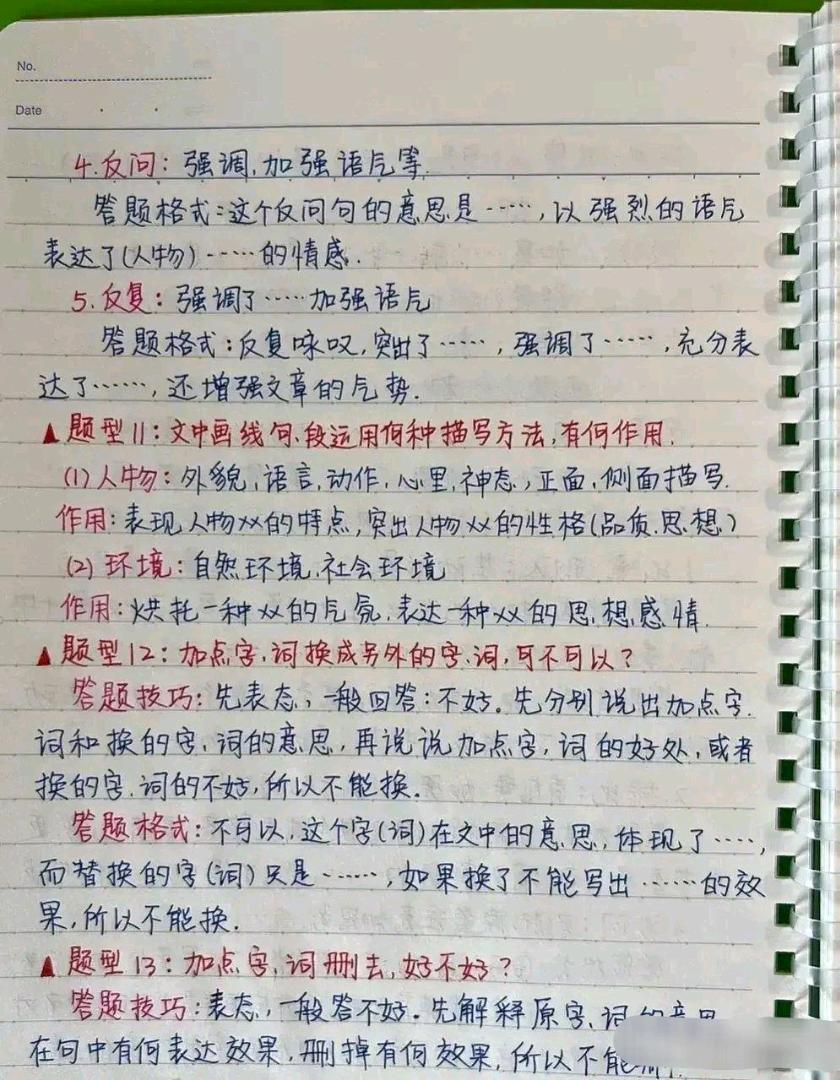 No.
Date
4.反问：强调,加强语气等.
答题格式：这个反问句的意思是……,以强烈的语气
表达了(人物)……的情感.
5.反复：强调了……加强语气
答题格式：反复咏叹,突出了……,强调了……,充分表
达了……,还增强文章的气势.
▲题型11：文中画线句、段运用何种描写方法,有何作用.
(1)人物：外貌,语言,动作,心里,神态,正面,侧面描写.
作用：表现人物××的特点,突出人物××的性格(品质.思想)
(2)环境：自然环境.社会环境
作用：烘托一种××的气氛.表达一种××的思想感情.
▲题型12：加点字、词换成另外的字、词,可不可以？
答题技巧：先表态,一般回答：不好。先分别说出加点字.
词和换的字、词的意思,再说说加点字,词的好处,或者
换的字.词的不好,所以不能换.
答题格式：不可以,这个字(词)在文中的意思,体现了……,
而替换的字(词)只是……,如果换了不能写出……的效
果,所以不能换.
▲题型13：加点字、词删去,好不好？
答题技巧：表态,一般答不好.先解释原字、词
在句中有何表达效果,删掉有何效果,所以不能